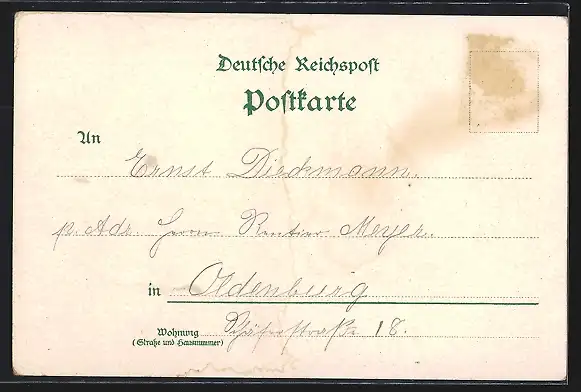 Deutsche Reichspost
Postkarte
An Ernst Dieckmann.
p. Adr. Herrn Rentier Meyer.
in Oldenburg
Wohnung Schäferstraße 18.
(Straße und Hausnummer)